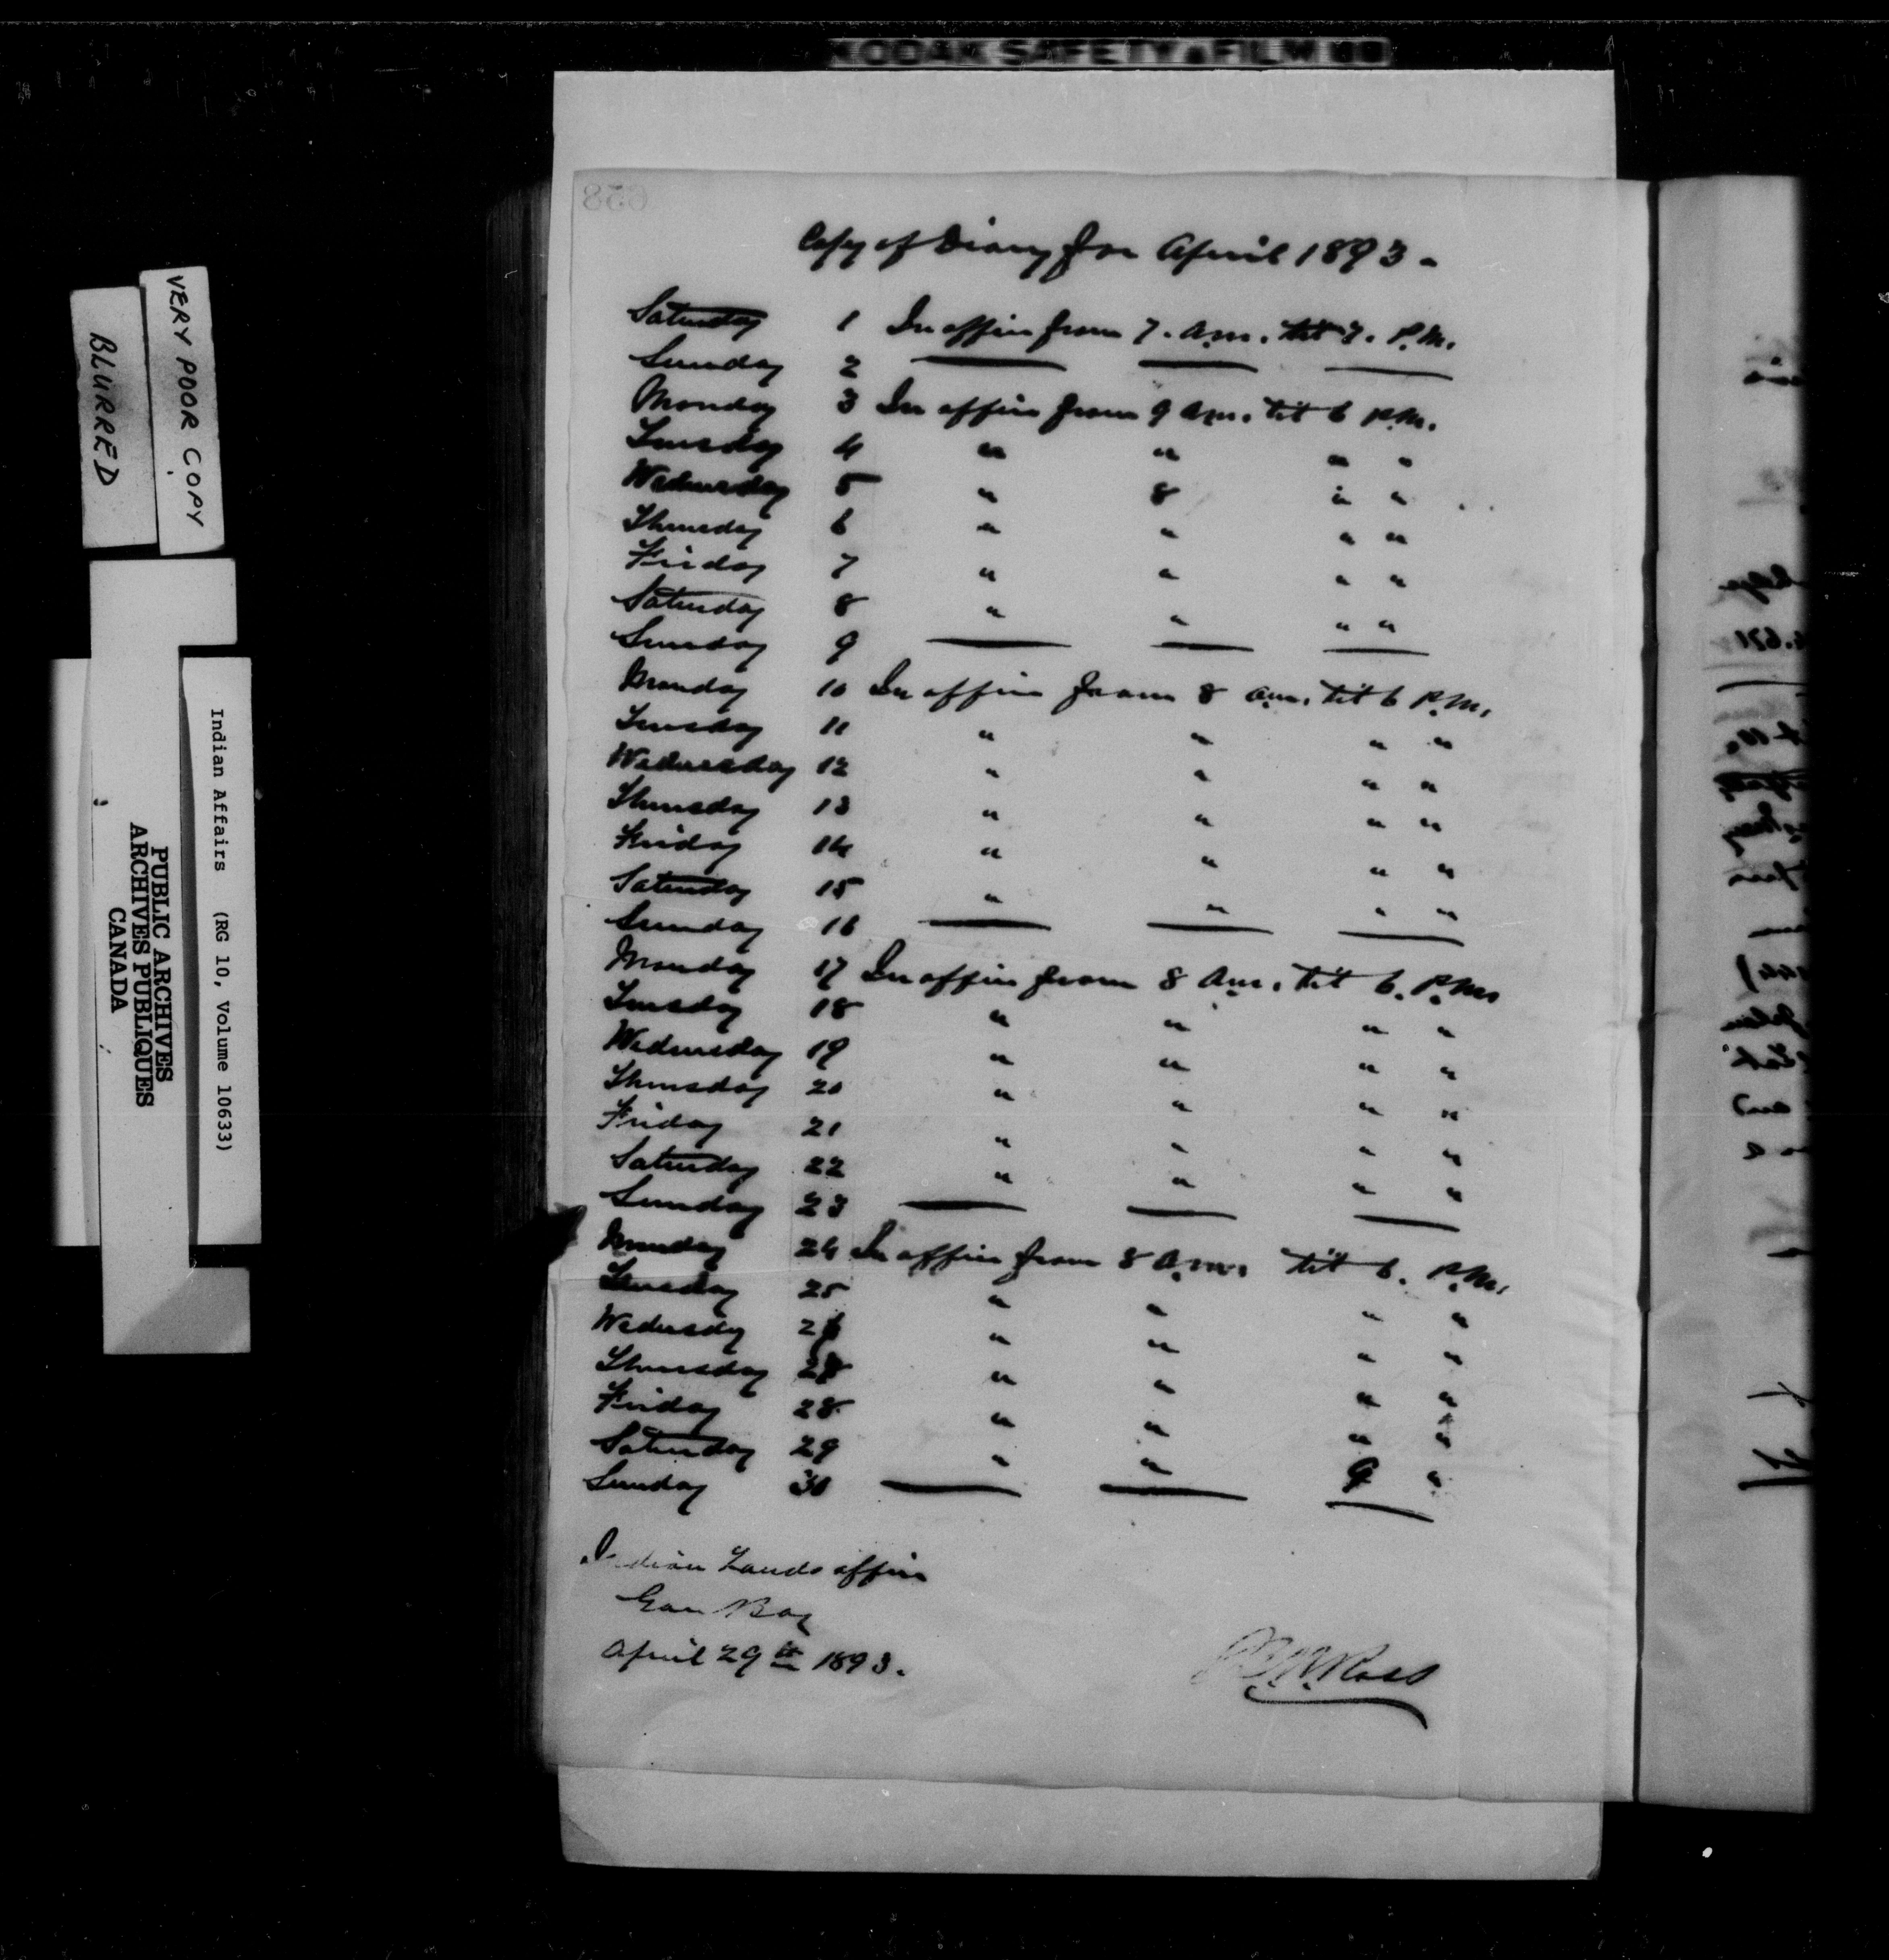 KODAK SAFETY FILM
VERY POOR COPY
BLURRED
Indian Affairs (RG 10, Volume 10633)
PUBLIC ARCHIVES
ARCHIVES PUBLIQUES
CANADA
658
Copy of Diary for April 1893 -
Saturday 1 In office from 7. a.m. till 7. P.M.
Sunday 2 — — —
Monday 3 In office from 9 a.m. till 6 P.M.
Tuesday 4 " " " "
Wednesday 5 " 8 " "
Thursday 6 " " " "
Friday 7 " " " "
Saturday 8 " " " "
Sunday 9 — — —
Monday 10 In office from 8 a.m. till 6 P.M.
Tuesday 11 " " " "
Wednesday 12 " " " "
Thursday 13 " " " "
Friday 14 " " " "
Saturday 15 " " " "
Sunday 16 — — —
Monday 17 In office from 8 a.m. till 6. P.M.
Tuesday 18 " " " "
Wednesday 19 " " " "
Thursday 20 " " " "
Friday 21 " " " "
Saturday 22 " " " "
Sunday 23 — — —
Monday 24 In office from 8 a.m. till 6. P.M.
Tuesday 25 " " " "
Wednesday 26 " " " "
Thursday 27 " " " "
Friday 28 " " " "
Saturday 29 " " 9 "
Sunday 30 — — —
Indian Lands office
Gore Bay
April 29th 1893.
Ross